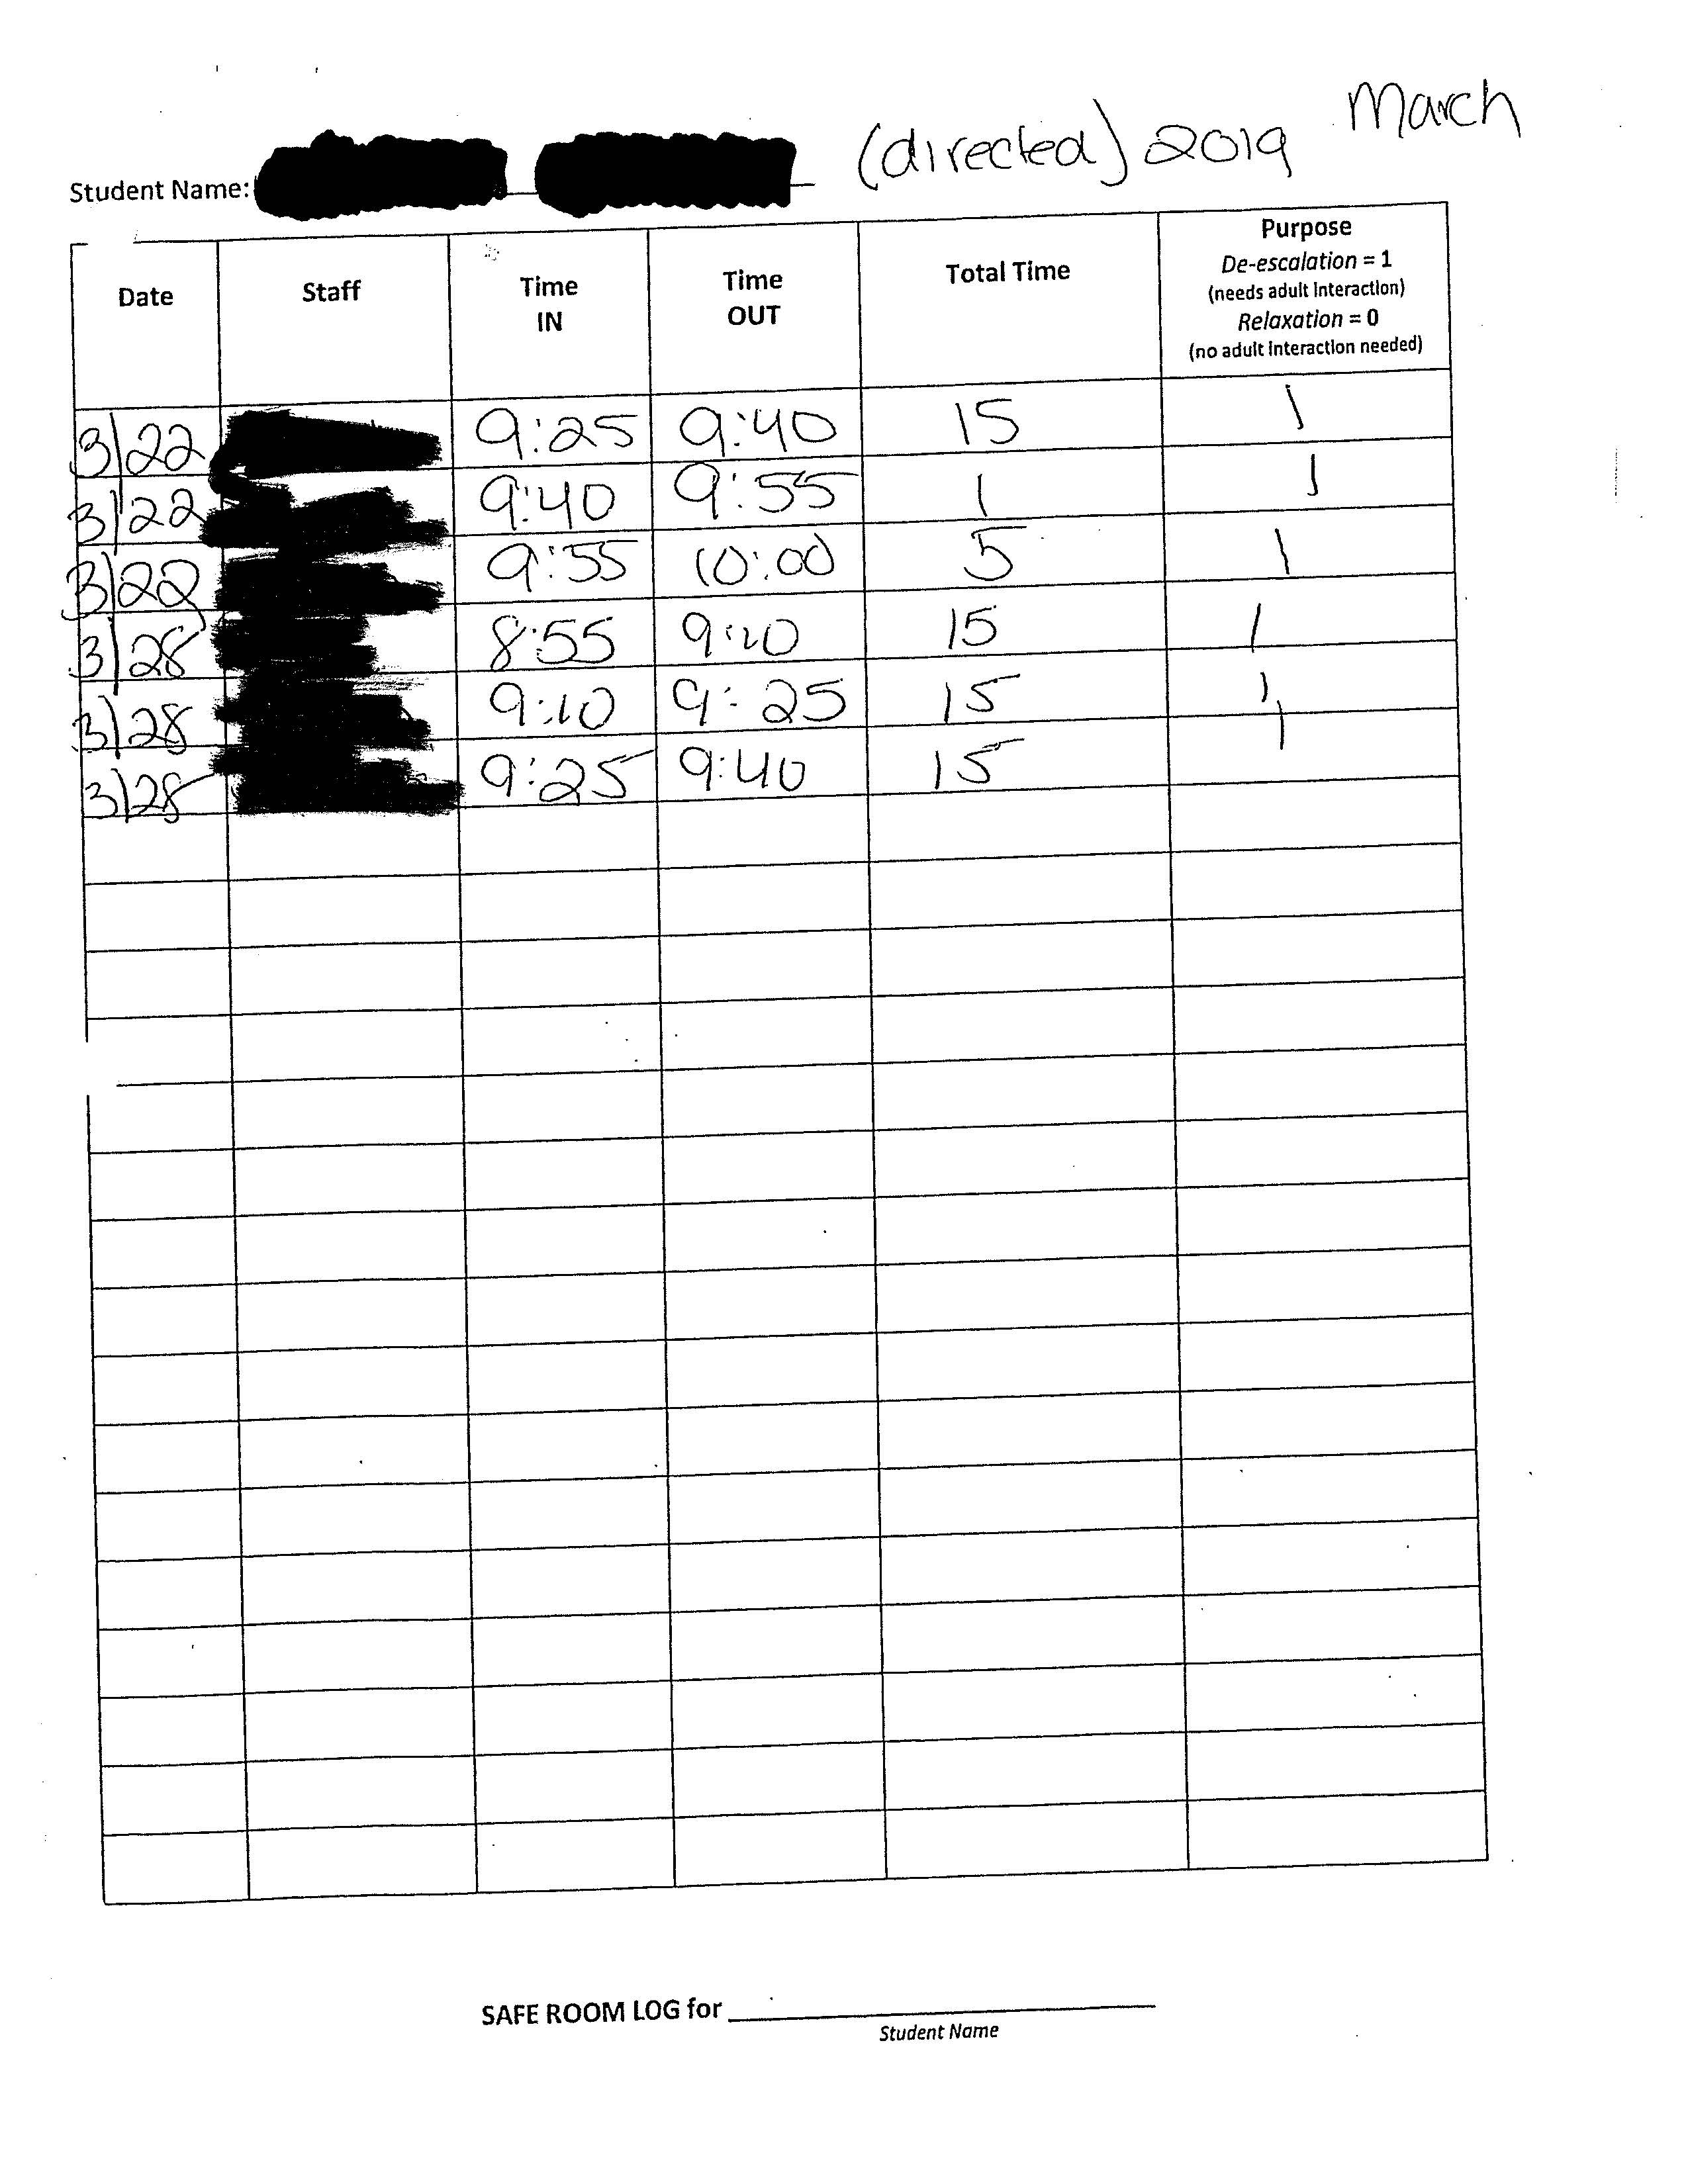 March
Student Name: (directed) 2019
Date Staff Time IN Time OUT Total Time Purpose
De-escalation = 1
(needs adult interaction)
Relaxation = 0
(no adult interaction needed)
3/22 9:25 9:40 15 1
3/22 9:40 9:55 1 1
3/22 9:55 10:00 5 1
3/28 8:55 9:10 15 1
3/28 9:10 9:25 15 1
3/28 9:25 9:40 15 1
SAFE ROOM LOG for
Student Name